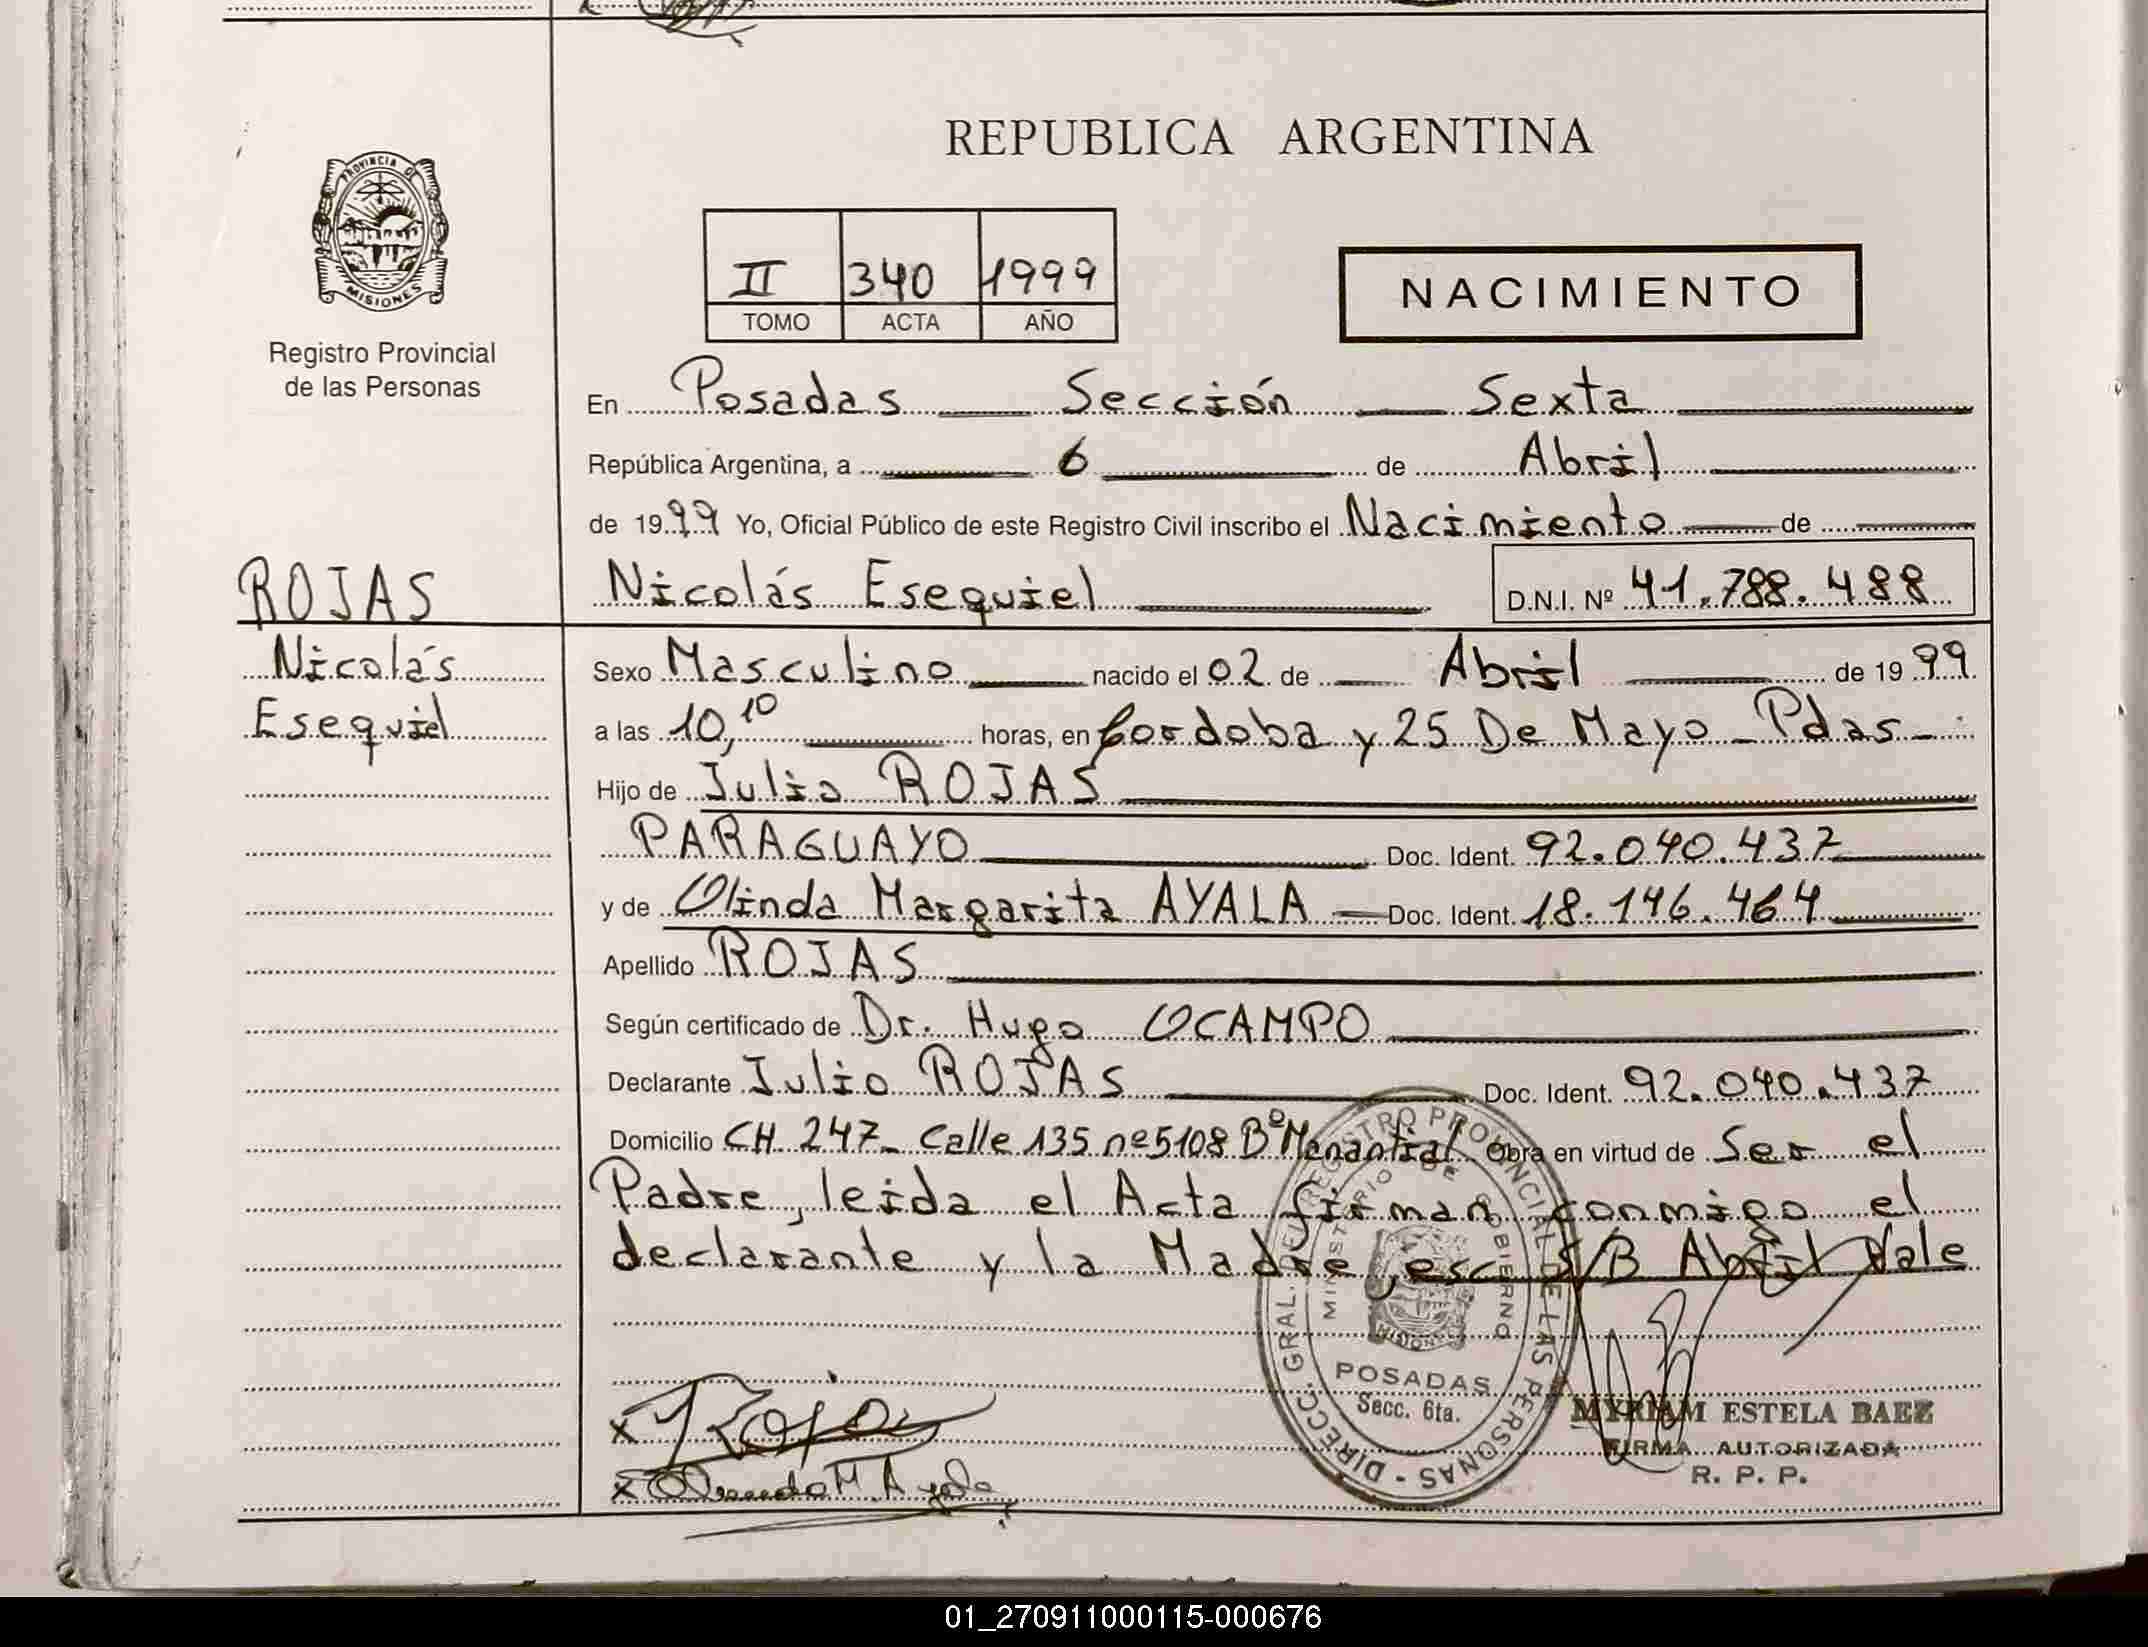 REPUBLICA ARGENTINA
PROVINCIA DE
MISIONES
Registro Provincial
de las Personas
II 340 1999
TOMO ACTA AÑO
NACIMIENTO
En Posadas Sección Sexta
República Argentina, a 6 de Abril
de 1999 Yo, Oficial Público de este Registro Civil inscribo el Nacimiento de
ROJAS
Nicolás Esequiel D.N.I. Nº 41.788.488
Nicolás
Esequiel
Sexo Masculino nacido el 02 de Abril de 1999
a las 10,10 horas, en Cordoba y 25 De Mayo - Pdas -
Hijo de Julio ROJAS
PARAGUAYO Doc. Ident. 92.040.437
y de Olinda Margarita AYALA Doc. Ident. 18.146.464
Apellido ROJAS
Según certificado de Dr. Hugo OCAMPO
Declarante Julio ROJAS Doc. Ident. 92.040.437
Domicilio CH. 247- Calle 135 nº5108 Bº Manantial Obra en virtud de Ser el
Padre, leida el Acta firman conmigo el
declarante y la Madre, esc S/B Abril Vale
DIRECC. GRAL. DEL REGISTRO PROVINCIAL DE LAS PERSONAS -
MINISTERIO DE GOBIERNO
MISIONES
POSADAS
Secc. 6ta.
x Rojas
x Olinda M. Ayala
MYRIAM ESTELA BAEZ
FIRMA AUTORIZADA
R. P. P.
01_270911000115-000676